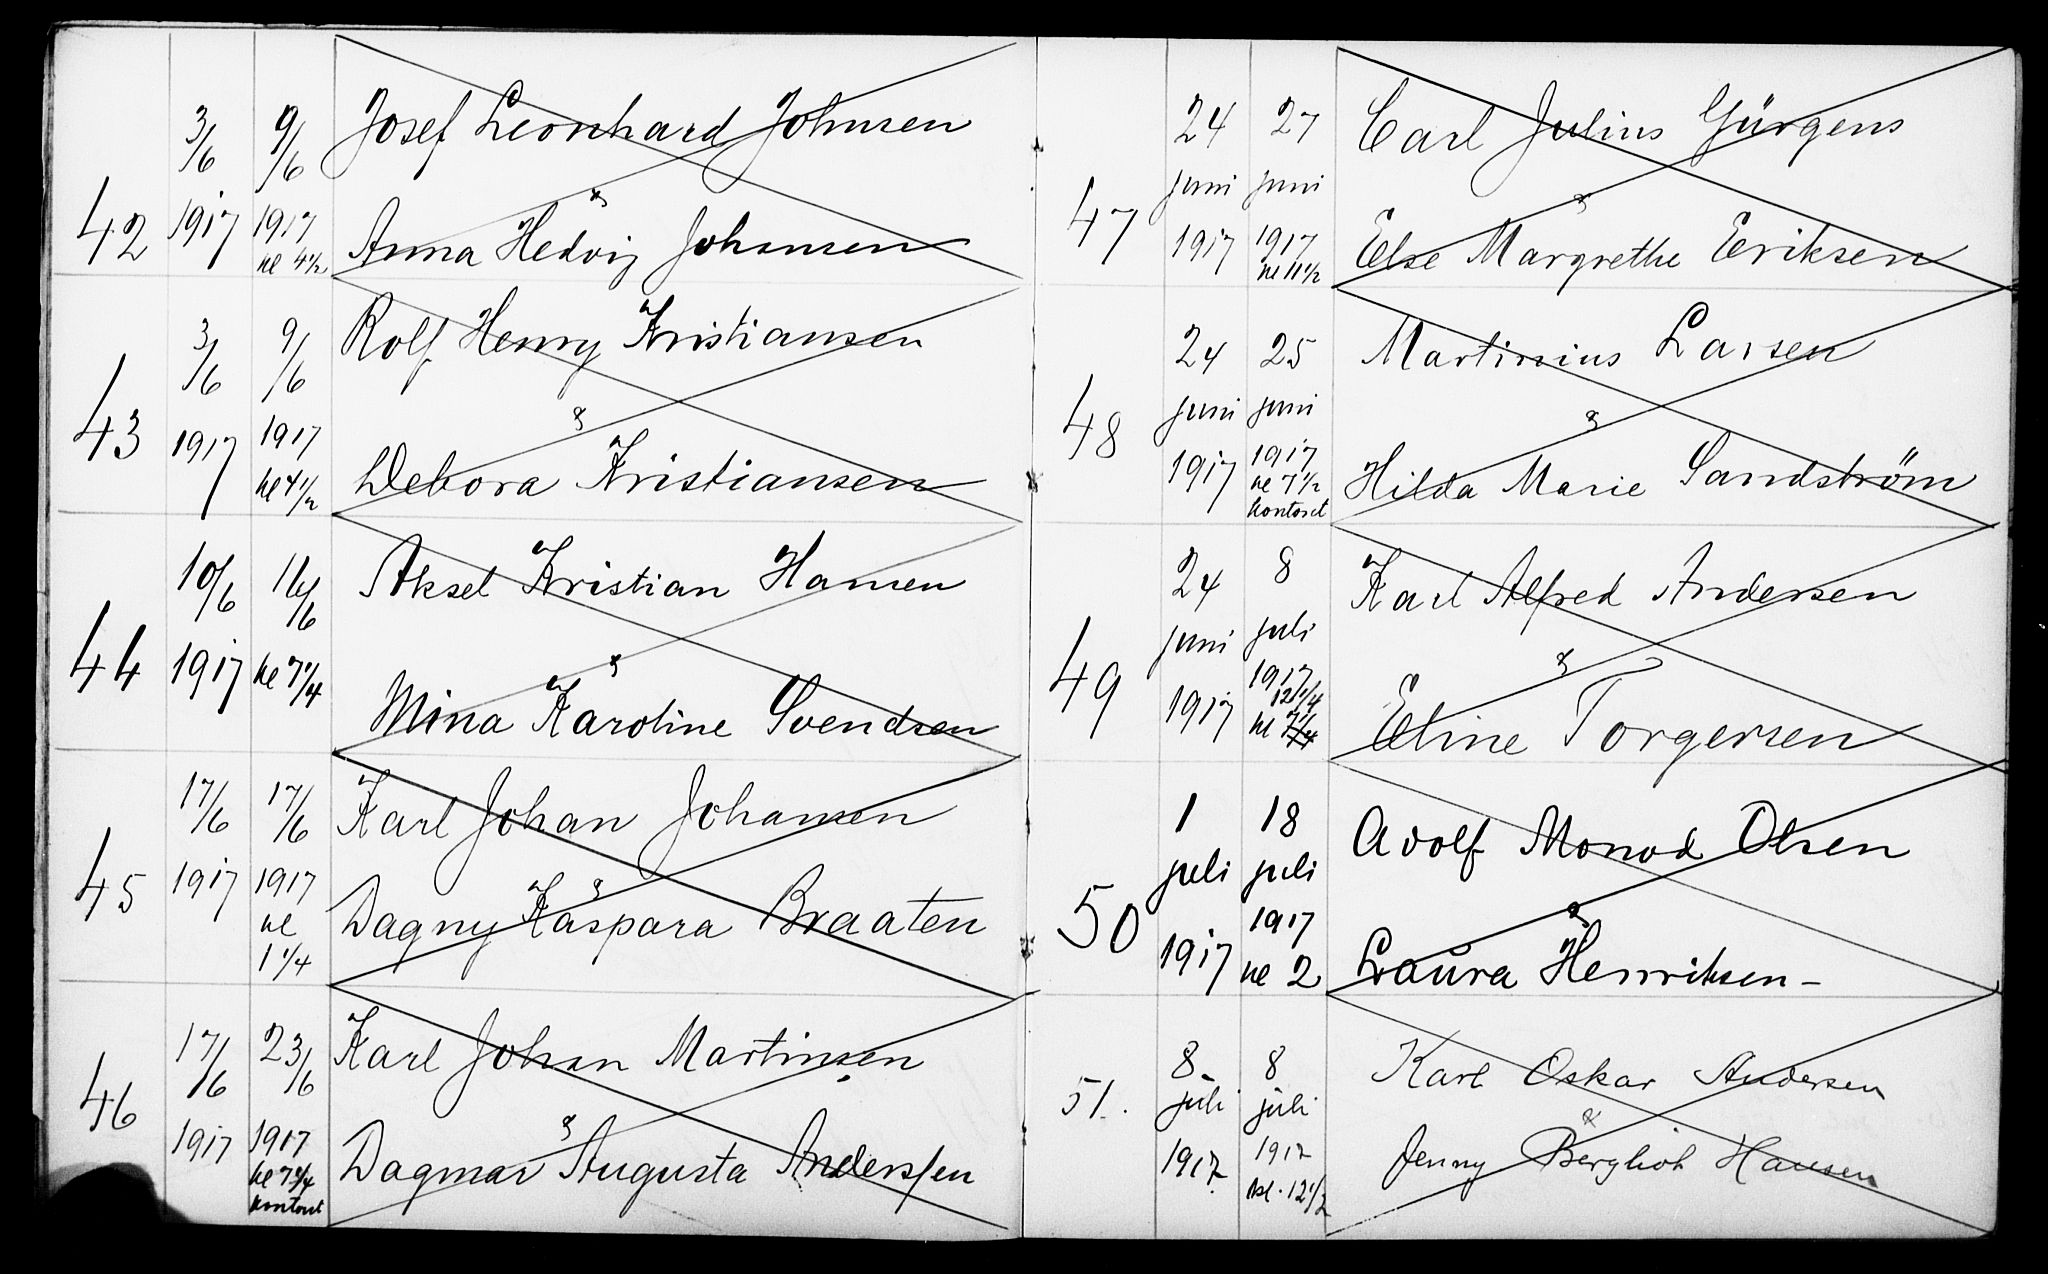 42
3/6
1917
9/6
1917
kl 4½
Josef Leonhard Johnsen
&
Anna Hedvig Johansen
43
3/6
1917
9/6
1917
kl 4½
Rolf Henry Kristiansen
&
Debora Kristiansen
44
10/6
1917
16/6
kl 7¼
Aksel Kristian Hansen
&
Mina Karoline Svendsen
45
17/6
1917
17/6
1917
kl
1¼
Karl Johan Johansen
&
Dagny Kaspara Braaten
46
17/6
1917
23/6
1917
kl 7¼
kontoret
Karl Johan Martinsen
&
Dagmar Augusta Anderssen
47
24
juni
1917
27
juni
1917
kl 11½
Carl Julius Gürgens
&
Else Margrethe Eriksen
48
24
juni
1917
25
juni
1917
kl 7½
kontoret
Martinius Larsen
&
Hilda Marie Sandström
49
24
juni
1917
8
juli
1917
12¼
kl 7¼
Karl Alfred Andersen
&
Eline Torgersen
50
1
juli
1917
18
juli
1917
kl 2
Adolf Monod Olsen
&
Laura Henriksen -
51.
8.
juli
1917.
8
juli
1917
kl. 12½
Karl Oskar Andersen
&
Jenny Bergliot Hansen